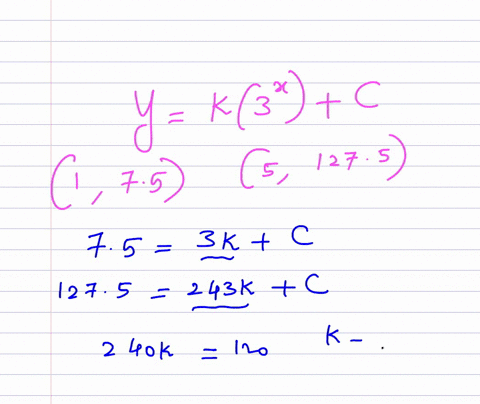 y = K(3^x) + C
(1, 7.5) (5, 127.5)
7.5 = 3K + C
127.5 = 243K + C
240K = 120 K - .